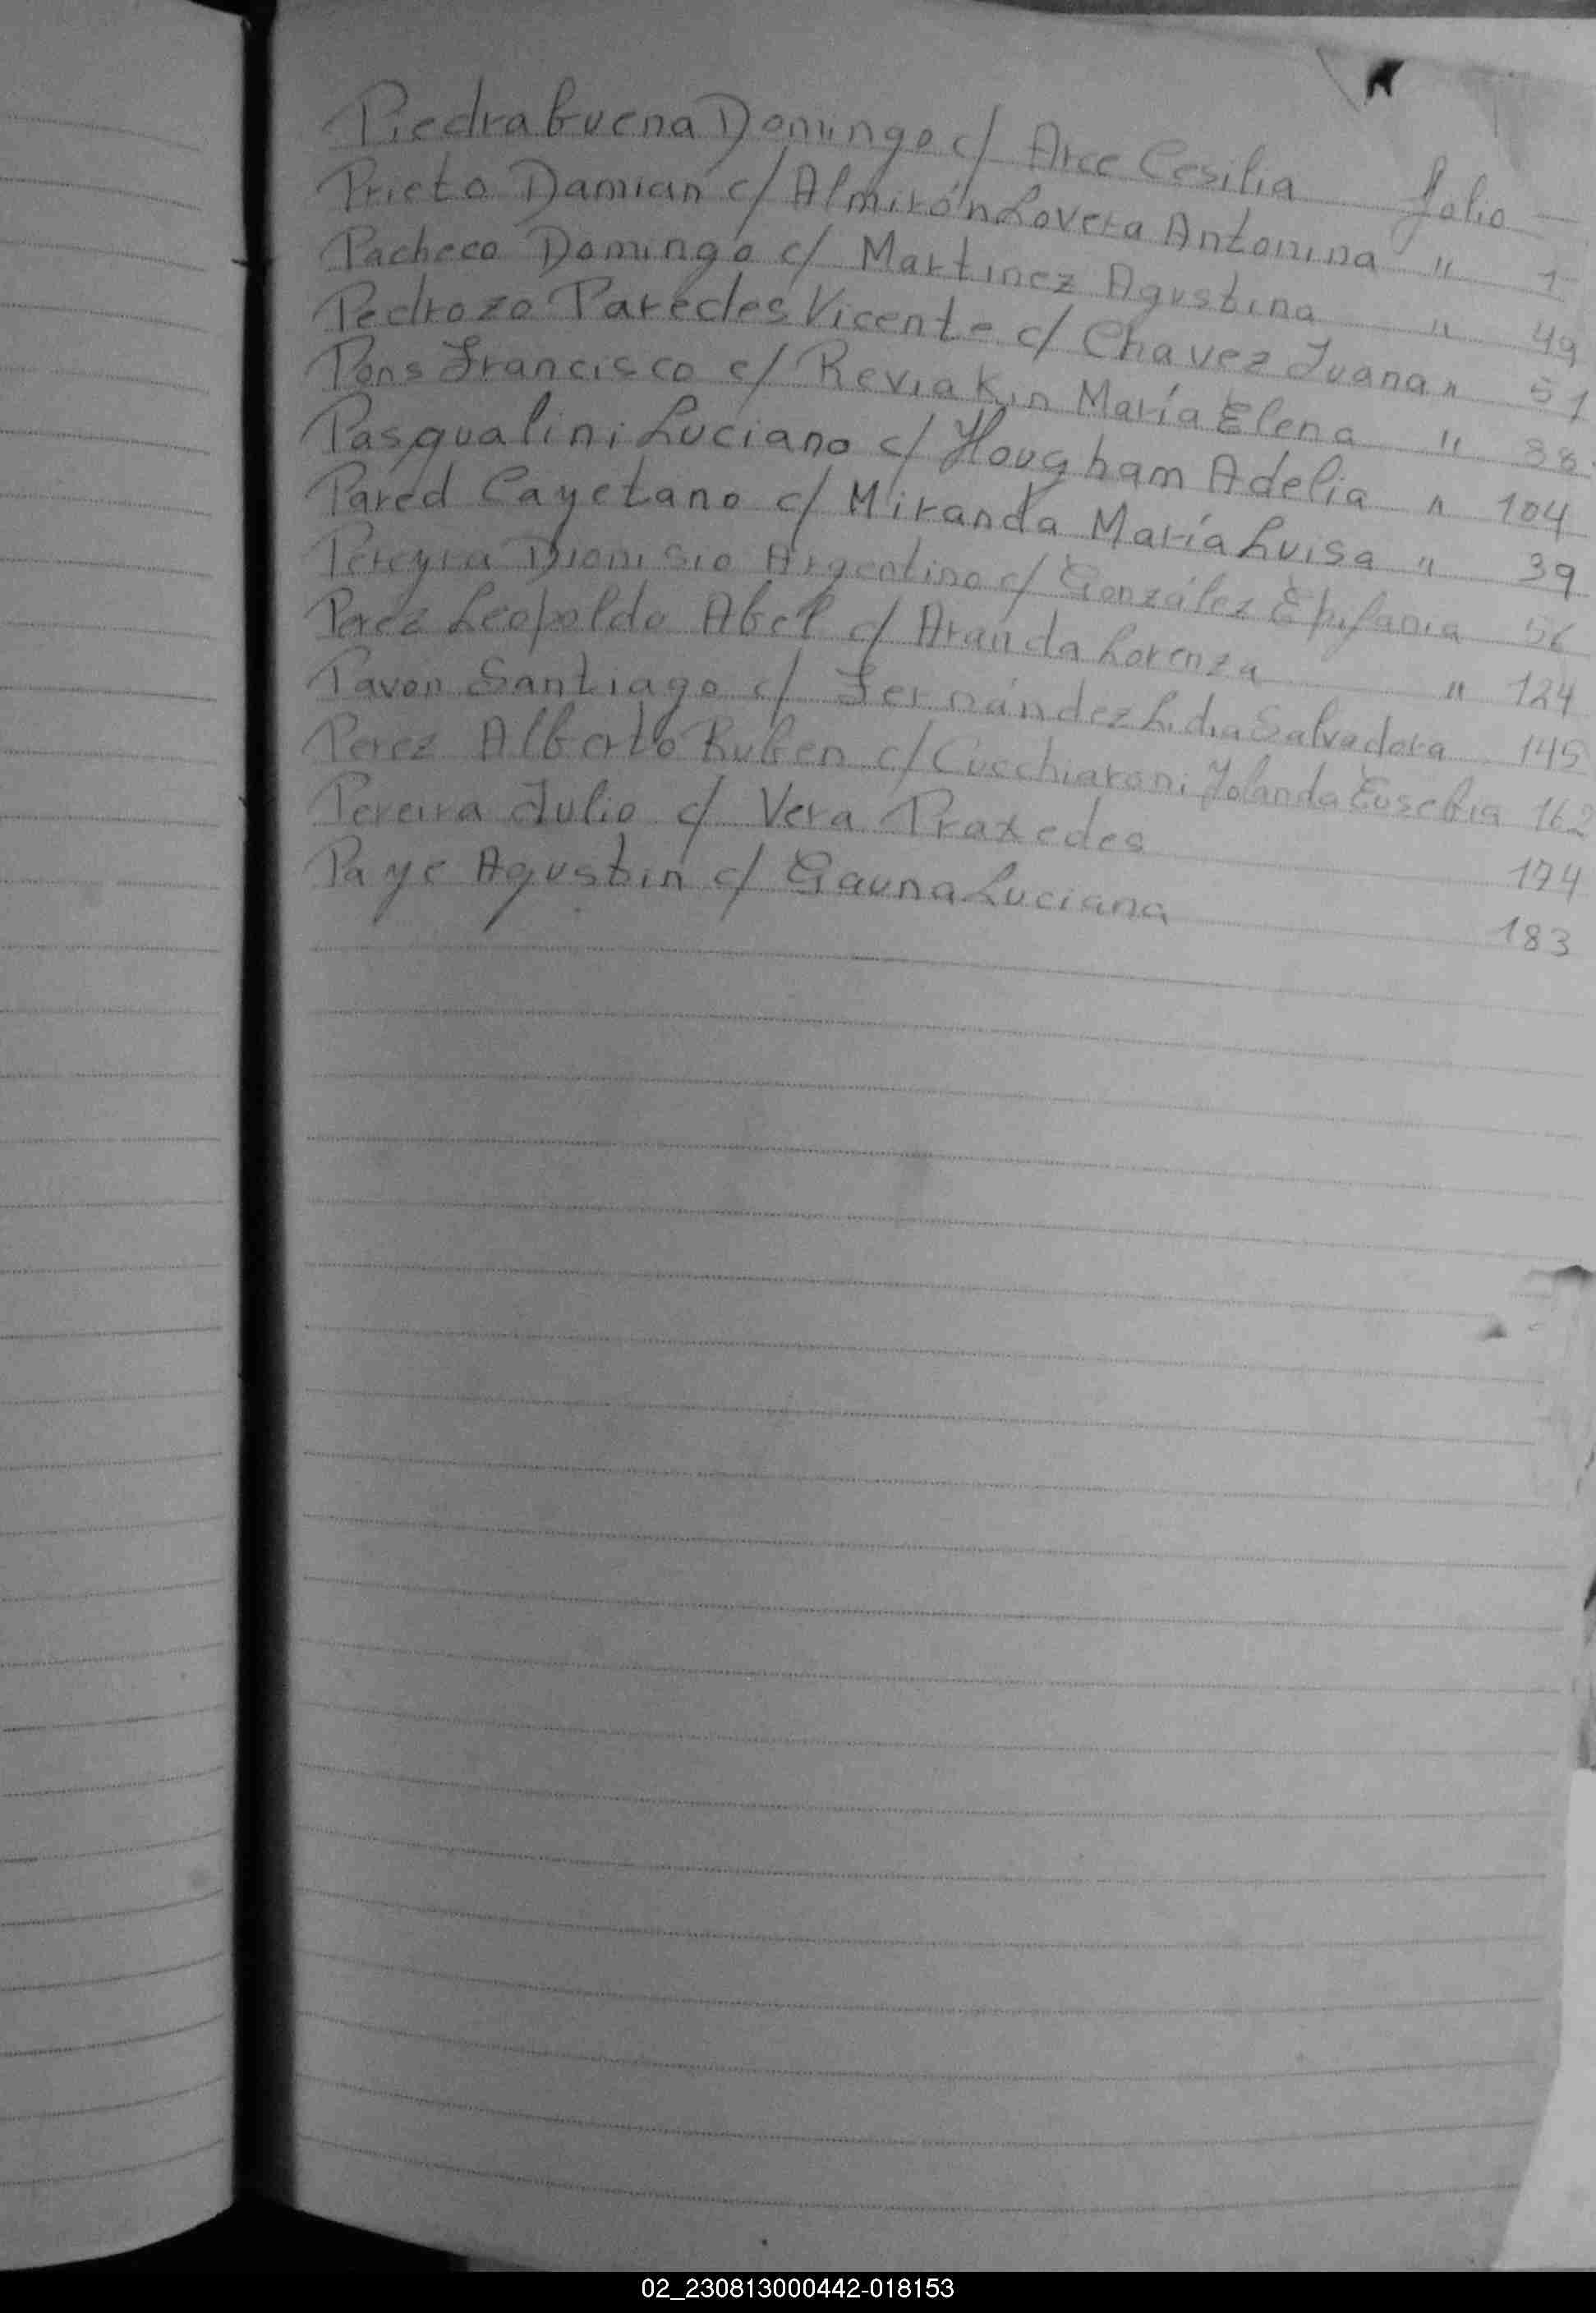 Piedrabuena Domingo c/ Arce Cesilia folio
Prieto Damián c/ Almirón Lovera Antonina " 1
Pacheco Domingo c/ Martinez Agustina " 49
Pedrozo Paredes Vicente c/ Chavez Juana " 51
Pons Francisco c/ Reviakin María Elena " 88
Pasqualini Luciano c/ Hougham Adelia " 104
Pared Cayetano c/ Miranda María Luisa " 39
Pereyra Dionisio Argentino c/ González Epifania 56
Perez Leopoldo Abel c/ Aranda Lorenza " 124
Pavon Santiago c/ Fernández Lidia Salvadora 145
Perez Alberto Ruben c/ Cucchiaroni Yolanda Eusebia 162
Pereira Julio c/ Vera Praxedes 174
Paye Agustin c/ Gauna Luciana 183
02_230813000442-018153